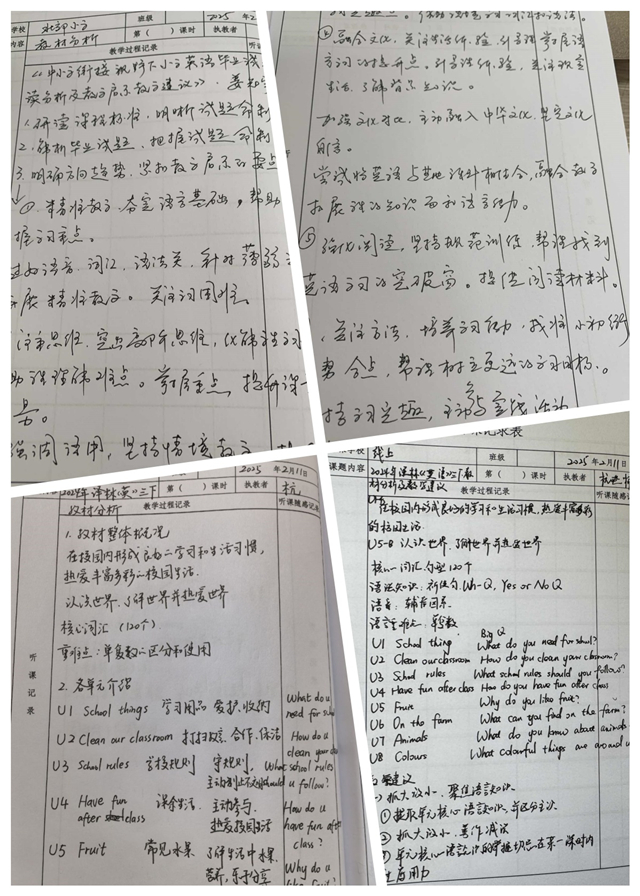 学校 北部小学 班级 2025年2
内容 教材分析 第（ ）课时 执教者
教学过程记录
《中小学衔接视域下小学英语毕业试
读分析及教学启示教学建议》
1.研读课程标准，明晰试题命制
2.解析毕业试题，把握试题命制
3.明确方向趋势，紧扣教学启示的要点
①.精准教学，夯实语言基础，帮助
握学习重点。
过的语音、词汇、语法类，针对薄弱
开展精准教学。关注词图
注重思维，突出高阶思维，化解
助课理解难点。掌握重点，提升课
员。
强调语用，坚持情境教学
④融合文化，关注生活体验，引导课掌握语
言学习的提升点。引导课体验，关注现实
生活，了解背景知识。
加强文化对比，主动融入中华文化，坚定文化
自信。
尝试将英语与其他课科相结合，融合教学
扩展课的知识面和语言能力。
⑤强化阅读，坚持规范训练，帮课找到
英语学习的突破口。提供阅读材料。
关注方法，培养学习能力，找准小初衔
契合点，帮课树立更远的学习目标。
持学习兴趣，主动参与实践活动
2025年2月11日
2024年译林(英)三下 第（ ）课时 执教者 杭
教材分析 教学过程记录 听课随感记
1.教材整体概况
在校园内形成良好的学习和生活习惯，
热爱丰富多彩的校园生活.
认识世界、了解世界并热爱世界
核心词汇（120个）
重难点：单复数的区分和使用
听课记录
2.各单元介绍
U1 School things 学习用品 爱护，收纳 What do u need for school
U2 Clean our classroom 打扫教室 合作，保洁 How do u clean your
U3 School rules 学校规则 守规则， What school rules
主动制止不文明 should u follow?
U4 Have fun after class 课余生活 主动参与， How do u
热爱校园生活 have fun after class?
U5 Fruit 常见水果 了解生活中水果 Why do u
营养，乐于分享 like fruit
记录表
学校 线上 班级 2025年2月11日
课题内容 2024年译林《英语》三下教 第（ ）课时 执教者
材分析及教学建议 教学过程记录 听课随感记
在校园内形成良好的学习和生活习惯，热爱丰富多彩
的校园生活.
U5-8 认识世界、了解世界并热爱世界
核心词汇、句型 120个
语法知识：祈使句 Wh-Q, Yes or No Q
语音：辅音因素
语言难点：单复数
Big Q
U1 School thing What do you need for school?
U2 Clean our classroom How do you clean your classroom?
U3 School rules What school rules should you follow?
U4 Have fun after class How do you have fun after class
U5 Fruit Why do you like fruit?
U6 On the farm What can you find on the farm?
U7 Animals What do you know about animals
U8 Colours What colourful things are around u
建议
抓大放小，聚焦语言知识
①提取单元核心语言知识，并区分主次
②抓大放小，善作减法
③单元核心语言知识的掌握切忌在第一课时内
用力